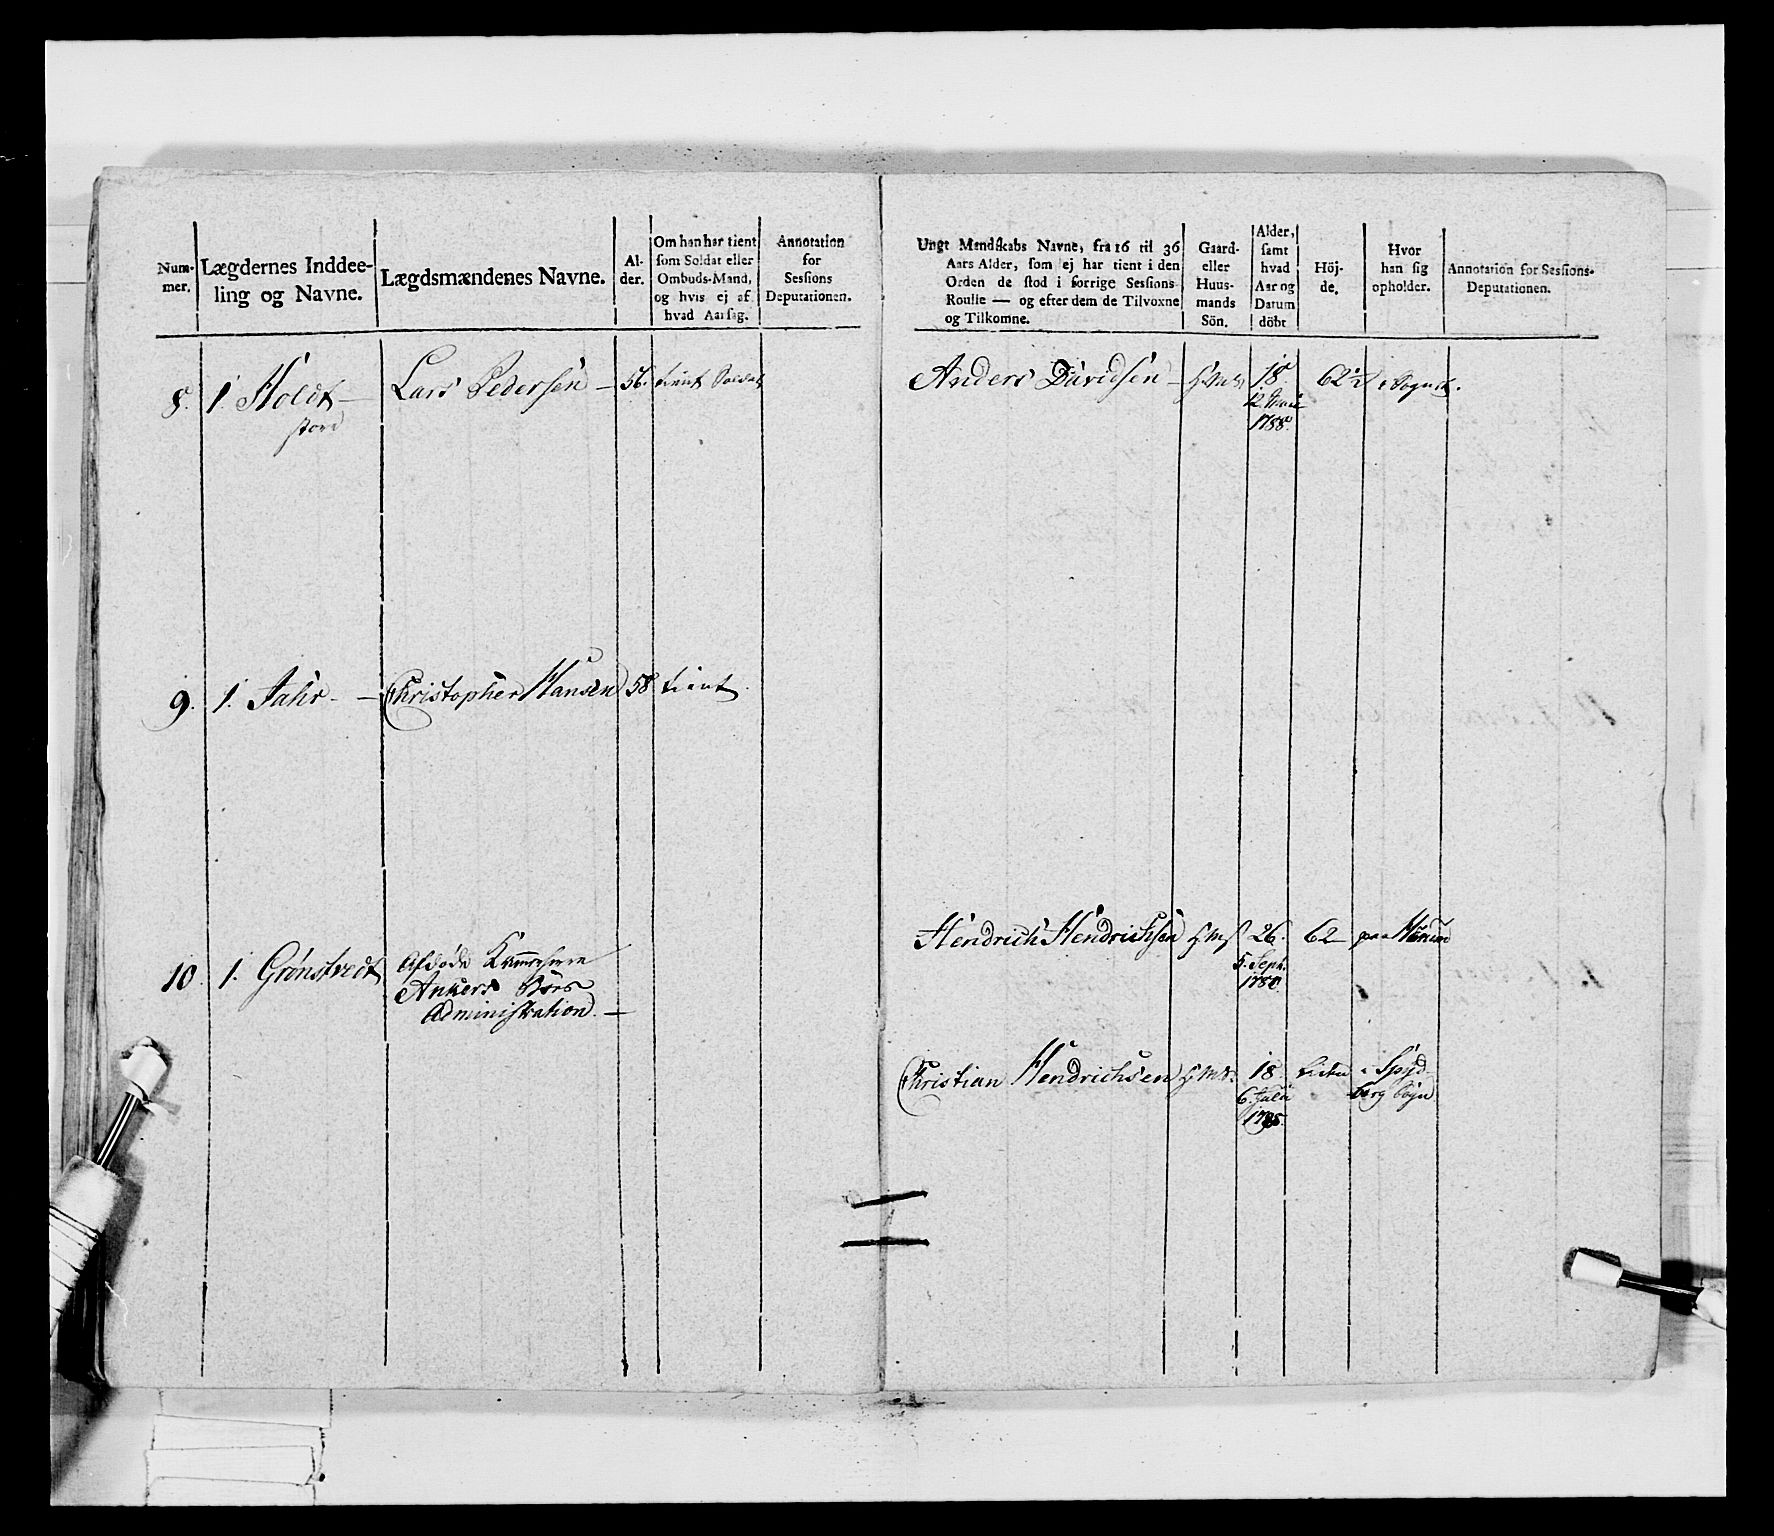 Num-
mer.
Lægdernes Inddee-
ling og Navne.
Lægdsmændenes Navne.
Al-
der.
Om han har tient
som Soldat eller
Ombuds-Mand,
og hvis ej af
hvad Aarsag.
Annotation
for
Sessions
Deputationen.
8. 1. Holdt —
store
Lars Pedersen —
56.
tient Soldat
9. 1. Jahr — Christopher Hansen 58 tient.
10. 1. Grønstvedt
Afdøde
Ankers Boes
Administration. —
Ungt Mandskabs Navne, fra 16 til 36
Aars Alder, som ej har tient i den
Orden de stod i forrige Sessions-
Roulle — og efter dem de Tilvoxne
og Tilkomne.
Gaard-
eller
Huus-
mands
Sön.
Alder,
samt
hvad
Aar og
Datum
döbt
Höj-
de.
Hvor
han sig
opholder.
Annotation for Sessions-
Deputationen.
Anders Davidsen — 18. 62½ i Sognet.
12.
1788.
Hendrich Hendrichsen HMS 26. 62 — paa
5. Sept.
1780.
Christian Hendrichsen HMS. 18. liden i Spyd-
6. Julii berg Sogn